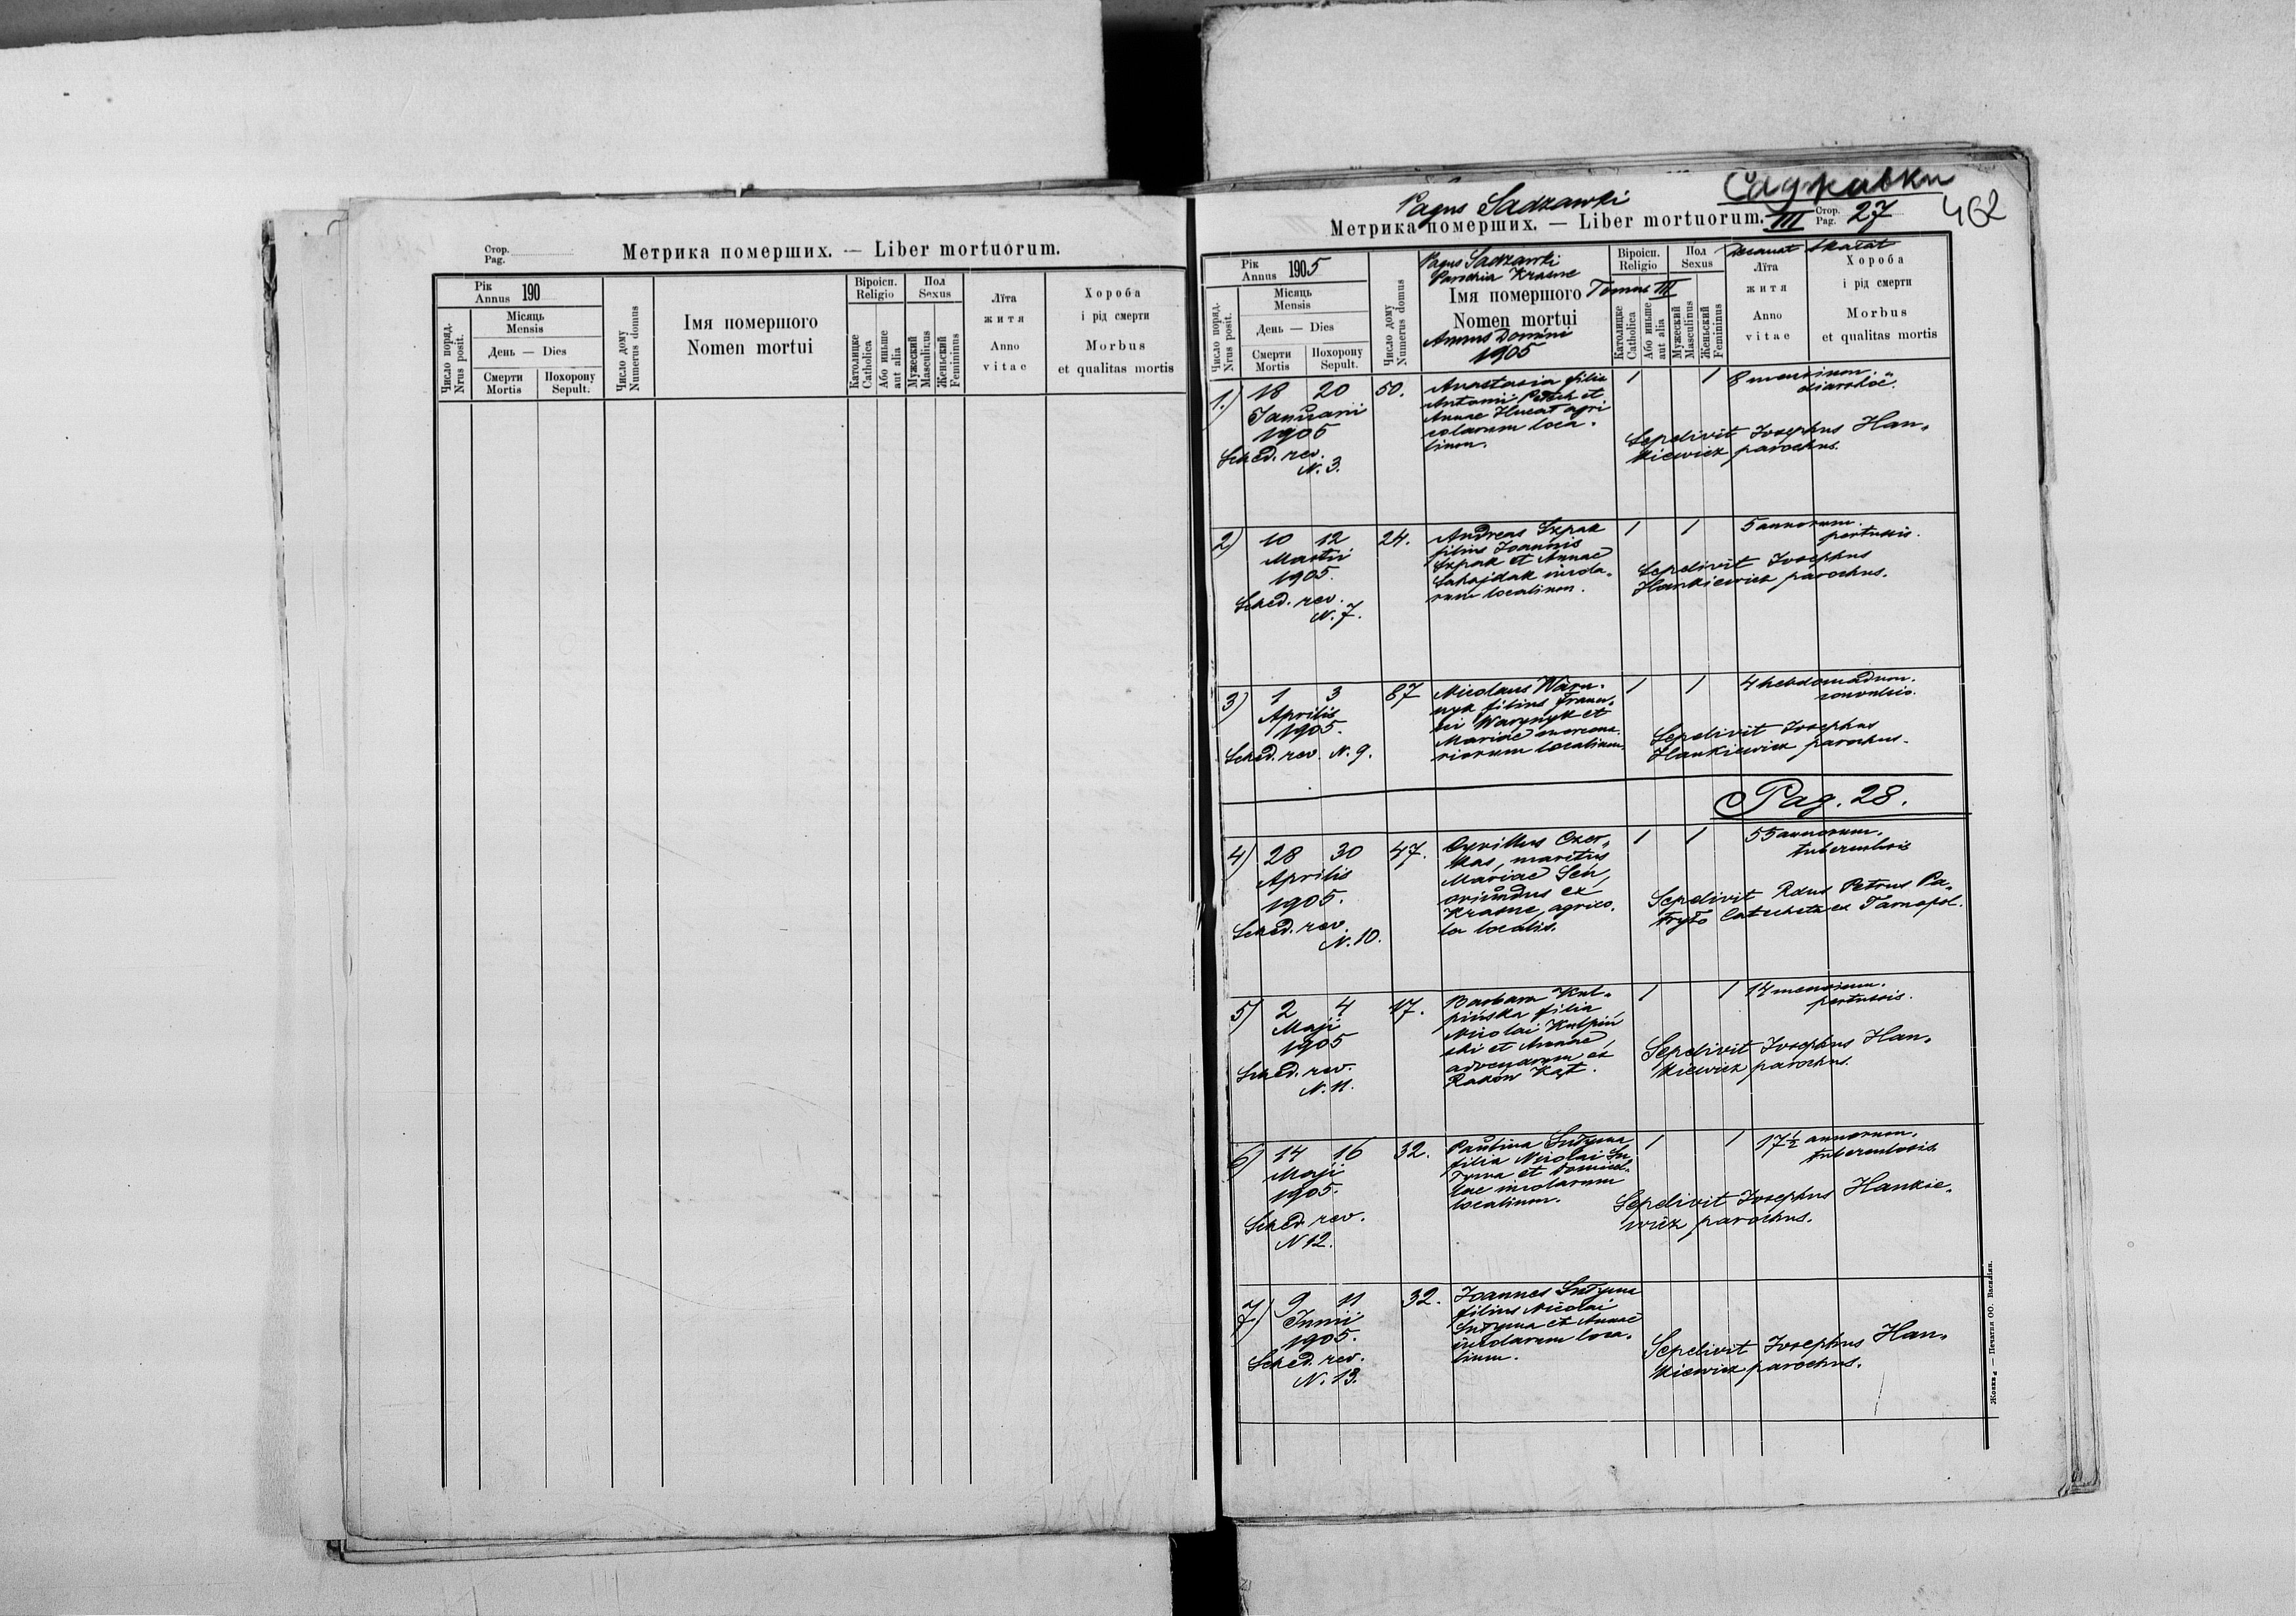 Стор.
Pag.
Метрика померших. — Liber mortuorum.
Рік
Annus 190
Місяць
Mensis
День — Dies
Смерти
Mortis
Похорону
Sepult.
Число поряд.
Nrus posit.
Число дому
Numerus domus
Імя помершого
Nomen mortui
Віроісп.
Religio
Католицке
Catholica
Або иньше
aut alia
Пол
Sexus
Мужеский
Masculinus
Женьский
Femininus
Лїта
житя
Anno
vitae
Хороба
і рід смерти
Morbus
et qualitas mortis
Саджавки
Pagus Sadzawki
462
Метрика померших. — Liber mortuorum. III Стор. Pag. 27
Рік
Annus 1905
Місяць
Mensis
День — Dies
Смерти
Mortis
Похорону
Sepult.
Число поряд.
Nrus posit.
Число дому
Numerus domus
Pagus Sadzawki
Parochia Krasne
Імя помершого Tomus III
Nomen mortui
Annus Domini
1905
Віроісп.
Religio
Католицке
Catholica
Або иньше
aut alia
Пол
Sexus
Мужеский
Masculinus
Женьский
Femininus
Decanat Skałat
Лїта
житя
Anno
vitae
Хороба
і рід смерти
Morbus
et qualitas mortis
1.) 18 20 50.
Januarii
1905
Sched. rev.
N. 3.
Anastasia filia
Antonii et
Annae agri
colarum loca-
lium.
1 1 8 mensium.
diarrhoë.
Sepelivit Josephus Han-
kiewicz parochus.
2) 10 12 24.
Martii
1905.
Sched. rev.
N. 7.
Andreas Szpak
filius Joannis
Szpak et Annae
Sahajdak incola-
rum localium.
1 1 5 annorum.
pertussis.
Sepelivit Josephus
Hankiewicz parochus.
3) 1 3 87
Aprilis
1905.
Sched. rev. N. 9.
Nicolaus Wary-
nyk filius Franci-
sci Warynyk et
Mariae mercena-
riorum localium.
1 1 4 hebdomadum.
convulsio.
Sepelivit Josephus
Hankiewicz parochus.
Pag. 28.
4) 28 30 47.
Aprilis
1905.
Sched. rev.
N. 10.
Cyrillus
maritus
Mariae Seń,
oriundus ex
Krasne, agrico-
la localis.
1 1 55 annorum.
tuberculosis
Sepelivit Rdus Petrus Pa-
tryło Catecheta ex Tarnopol.
5) 2 4 17.
Maji
1905
Sched. rev.
N. 11.
Barbara Kul-
pińska filia
Nicolai Kulpiń
ski et Annae,
advenarum ex
Raków Kąt.
1 1 14 mensium.
pertussis.
Sepelivit Josephus Han-
kiewicz parochus.
6) 14 16 32.
Maji
1905.
Sched. rev.
N 12.
Paulina
filia Nicolai
et
incolarum
localium.
1 1 17 1/2 annorum.
tuberculosis
Sepelivit Josephus Hankie-
wicz parochus.
7.) 9 11 32.
Junii
1905.
Sched. rev.
N. 13.
Joannes
filius Nicolai
et Annae
incolarum loca-
lium.
Sepelivit Josephus Han-
kiewicz parochus.
Жовква — Печатня ОО. Василіян.